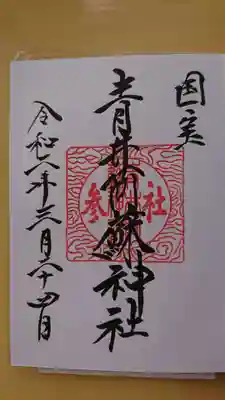 国宝
青井阿蘇神社
令和八年三月二十四日